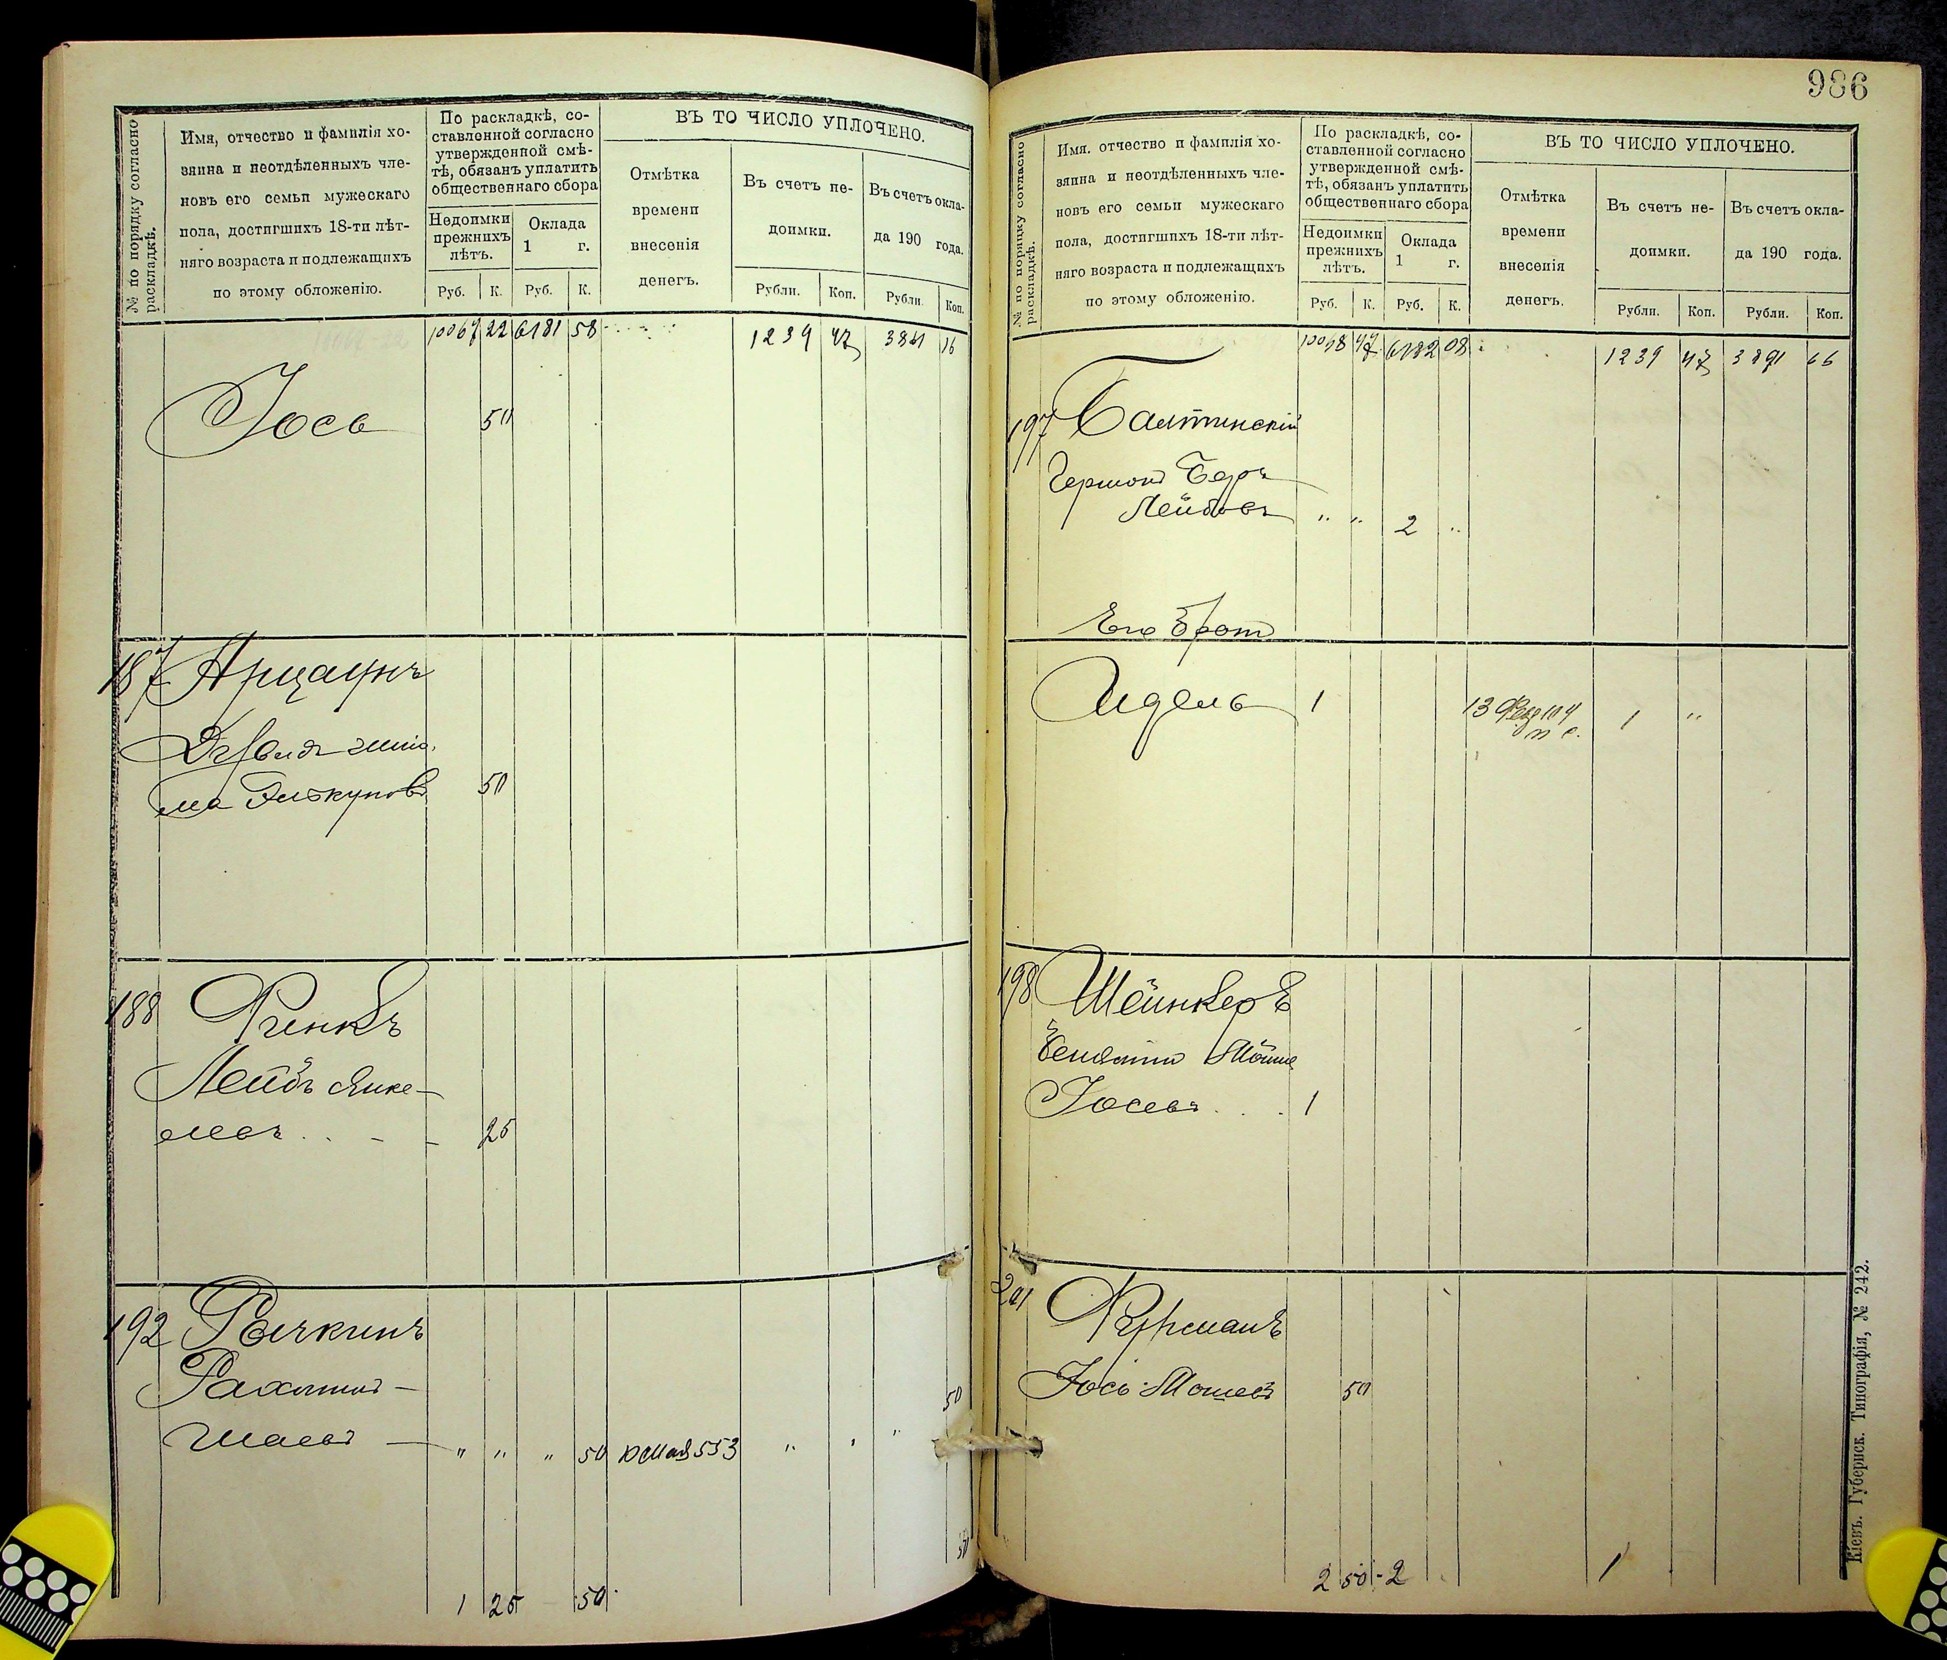 № по порядку согласно
раскладкѣ.
Имя, отчество и фамилія хо-
зяина и неотдѣленныхъ чле-
новъ его семьи мужескаго
пола, достигшихъ 18-ти лѣт-
няго возраста и подлежащихъ
по этому обложенію.
По раскладкѣ, со-
ставленной согласно
утвержденной смѣ-
тѣ, обязанъ уплатить
общественнаго сбора
Недоимки
прежнихъ
лѣтъ.
Оклада
1 г.
Руб. К. Руб. К.
ВЪ ТО ЧИСЛО УПЛОЧЕНО.
Отмѣтка
времени
внесенія
денегъ.
Въ счетъ не-
доимки.
Рубли. Коп.
Въ счетъ окла-
да 190 года.
Рубли. Коп.
10067 22 6181 58 1239 47 16
Іось 50
187
Давидъ
50
188 Финкъ
Лейбъ Янке-
левъ 25
192
" " " 50 553 " " "
50
1 25 50
986
№ по порядку согласно
раскладкѣ.
Имя. отчество и фамилія хо-
зяина и неотдѣленныхъ чле-
новъ его семьи мужескаго
пола, достигшихъ 18-ти лѣт-
няго возраста и подлежащихъ
по этому обложенію.
По раскладкѣ, со-
ставленной согласно
утвержденной смѣ-
тѣ, обязанъ уплатить
общественнаго сбора
Недоимки
прежнихъ
лѣтъ.
Оклада
1 г.
Руб. К. Руб. К.
ВЪ ТО ЧИСЛО УПЛОЧЕНО.
Отмѣтка
времени
внесенія
денегъ.
Въ счетъ не-
доимки.
Рубли. Коп.
Въ счетъ окла-
да 190 года.
Рубли. Коп.
47 6182 08 1239 47 66
197 Балтинскій
Гершонъ Беръ
Лейбовъ " " 2 "
Его братъ
Идель 1 13 1 "
198 Шейнкеръ
Мойше
Іосевъ 1
201 Фурманъ
Іось Мошевъ 50
2 50 - 2 1
Кіевъ. Губернск. Типографія, № 242.